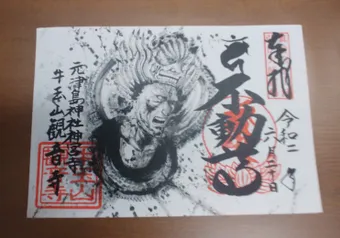 奉拝
令和二年
六月二十日
不動尊
元津島神社神宮寺
牛玉山観音寺